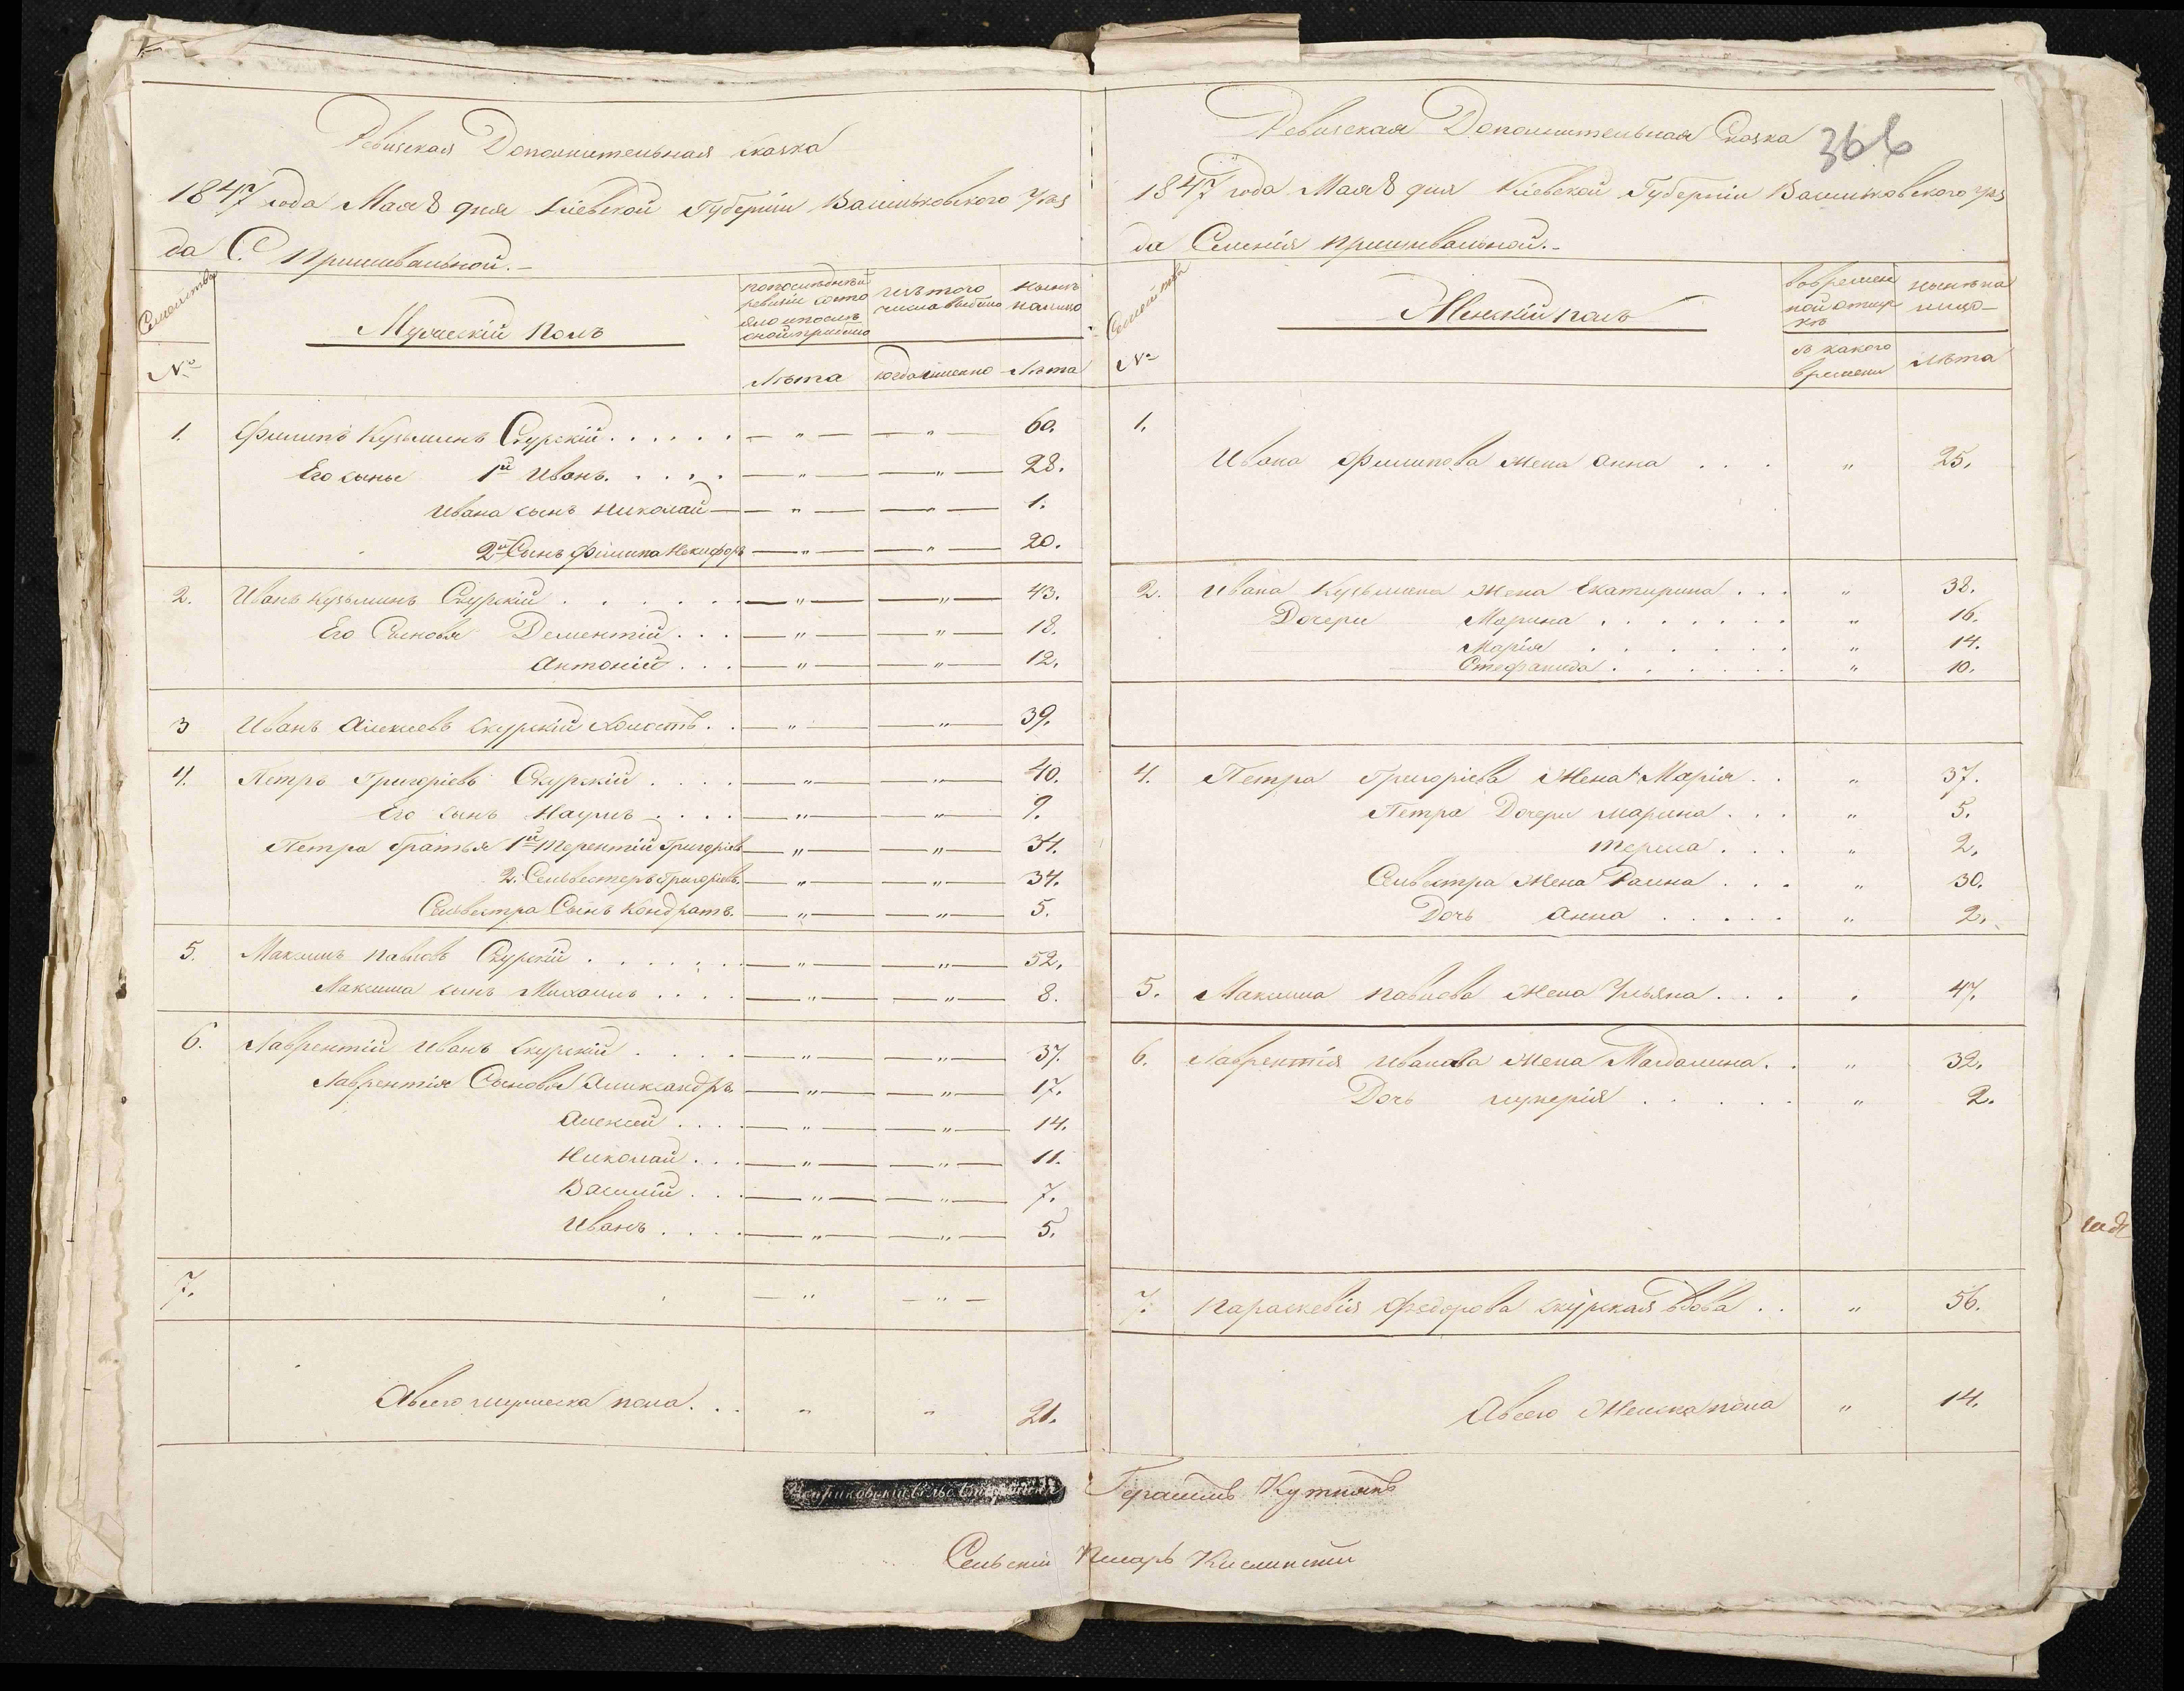 Ревизская Дополнительная сказка
1847 года Мая 8 дня Кіевской Губерніи Васильковского Уѣз
да С. Пришивальной.-
Семейства
Мужескій полъ
№
по последней ревизіи состо
изъ того числа выбыло
нынѣ налицо
Лѣта когда именно Лѣта
1. Филипъ Кузьминъ Скурскій . . . . . . — " — — " — 60.
Его сыны 1й Иванъ . . . . . — " — — " — 28.
Ивана сынъ Николай — " — — " — 1.
2й Сынъ Филипа Никифоръ — " — — " — 20.
2. Иванъ Кузьминъ Скурскій . . . . . . — " — — " — 43.
Его Сыновья Дементій . . . — " — — " — 18.
Антоній . . . — " — — " — 12.
3 Иванъ Алексеевъ Скурскій Холостъ . . — " — — " — 39.
4. Петръ Григоріевъ Скурскій . . . . — " — — " — 40.
Его сынъ Наумъ . . . . — " — — " — 9.
Петра братья 1й Терентій Григоріевъ — " — — " — 34.
2. Сельвестеръ Григоріевъ. — " — — " — 34.
Сельвестра Сынъ Кондратъ. — " — — " — 5.
5. Максимъ Павловъ Скурскій . . . . . . — " — — " — 52.
Максима сынъ Михаилъ . . . . — " — — " — 8.
6. Лаврентій Иванъ Скурскій . . . . — " — — " — 37.
Лаврентія Сыновья Александръ. — " — — " — 17.
Алексей . . . . — " — — " — 14.
Николай . . . — " — — " — 11.
Василій . . . — " — — " — 7.
Иванъ . . . . — " — — " — 5.
7. — " — — " —
Авсего мужеска пола . . . " " 21.
Ревизская Дополнительная Сказка
366
1847 года Мая 8 дня Кіевской Губерніи Васильковского Уѣз
да Селенія Пришивальной.-
Женскій полъ
№
во времен
ной отлуч
кѣ
нынѣ на
лицо
съ какого
времени
Лѣта
1.
Ивана Филипова жена Анна . . . " 25.
2. Ивана Кузьмина жена Екатирина . . . " 38.
Дочери Марина . . . . . . . " 16.
Марія . . . . . . . " 14.
Стефанида . . . . . . " 10.
4. Петра Григоріева Жена Марія . . " 37.
Петра Дочери Марина . . . " 5.
. . . " 2.
Сельвестра Жена . . . " 30.
Дочь Анна . . . . . " 2.
5. Максима Павлова Жена Ульяна . . . " 47.
6. Лаврентія Иванова Жена Магдалина . . " 32.
Дочь . . . . . " 2.
7. Параскевія Федорова Скурская вдова . . " 56.
Авсего Женска пола " 14.
Герасимъ
Сельскій Писарь